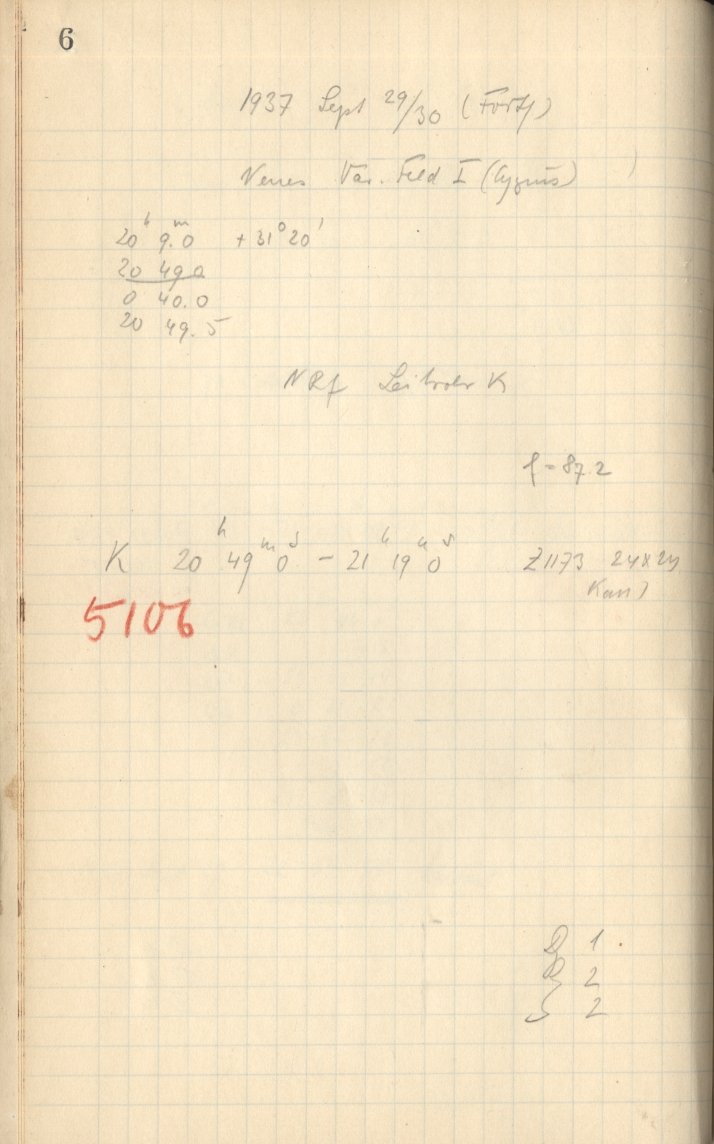 6
1937 Sept 29/30 (Forts)
Neues Var. Feld I (Cygnus)
20ʰ 9.ᵐ0 + 31° 20'
20 49.0
0 40.0
20 49.5
NRf Leitrohr K
f = 87.2
K 20ʰ 49ᵐ 0ˢ – 21ʰ 19ᵐ 0ˢ Z1173 24x24
5106
1
2
S 2